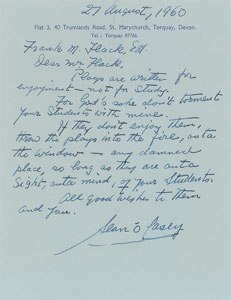 27 August, 1960
Flat 3, 40 Trumlands Road, St. Marychurch, Torquay, Devon.
Tel.: Torquay 87766.
Frank M. Flack, Esq.
Dear Mr Flack.
Plays are written for
enjoyment – not for study.
For God's sake don't torment
your Students with mine.
If they don't enjoy them,
throw the plays into the fire, outa
the window – any damned
place, so long as they are outa
sight, outa mind, of your Students.
All good wishes to them
and you.
Sean O'Casey